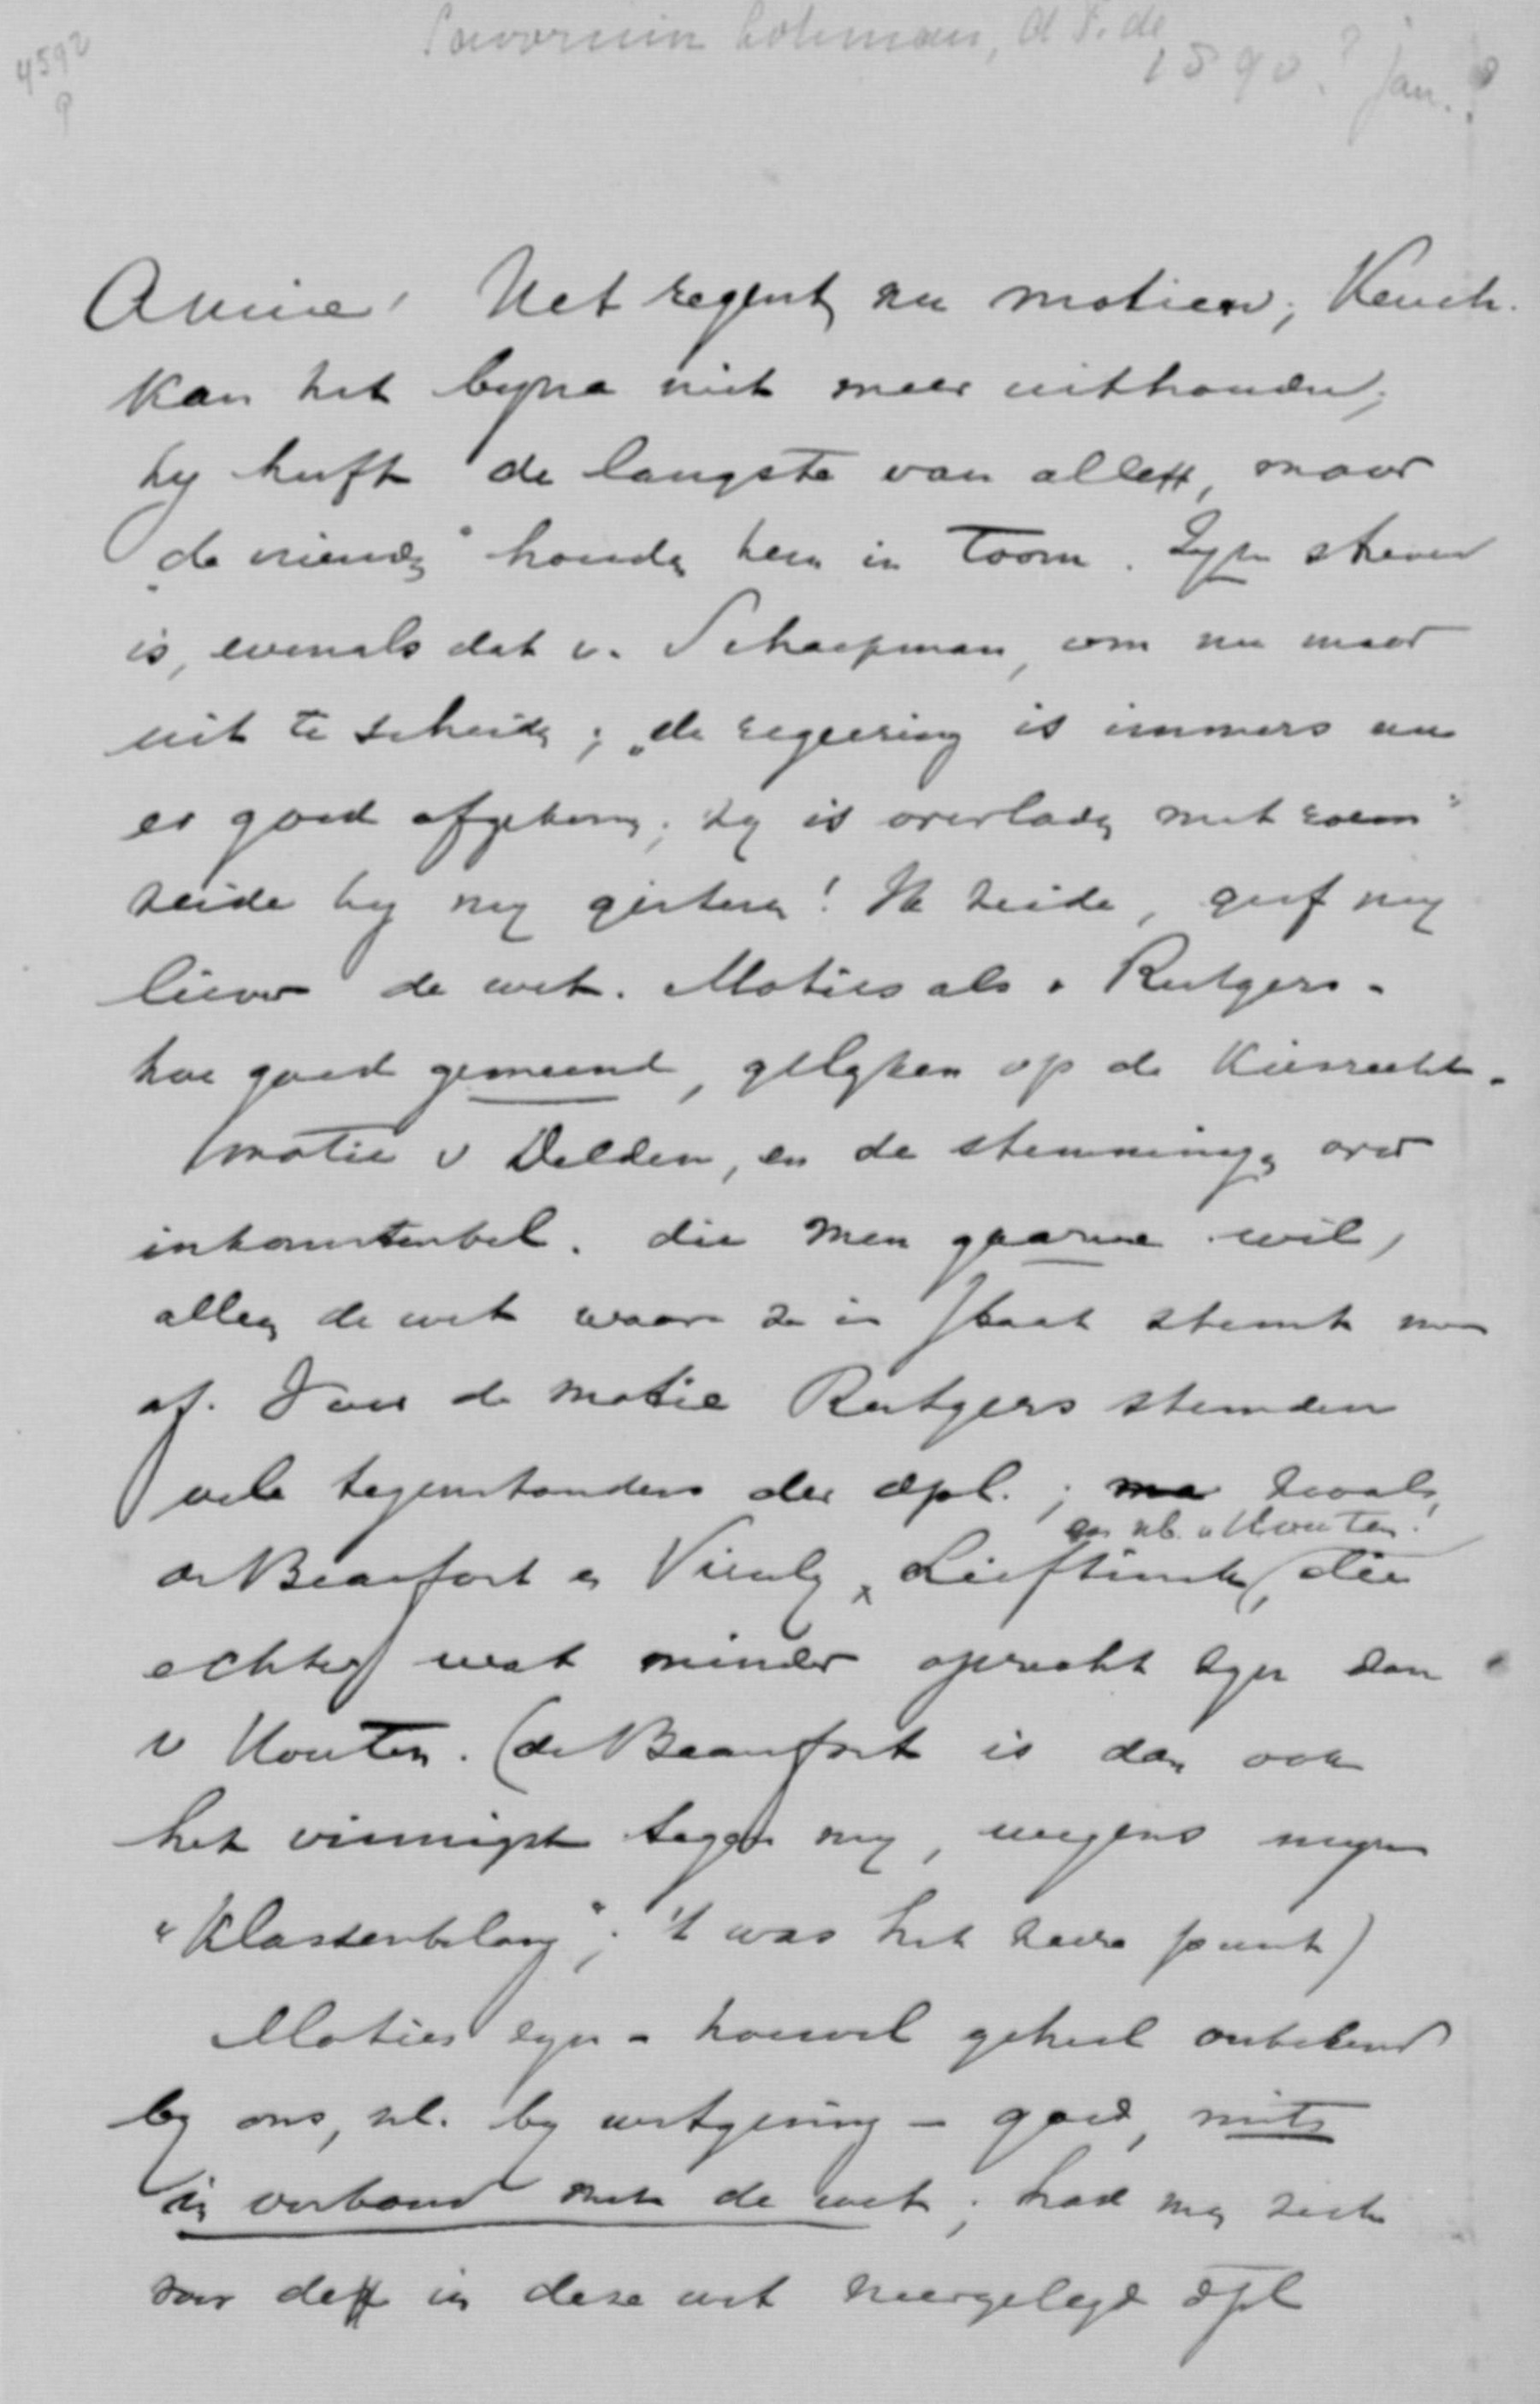 Savornin Lohman, A F. de
1890? jan.?
4592
9
Amice! Het regent nu motien; Keuch.
kan het byna niet meer uithouden;
hy heeft de langste van allen, maar
"de vrienden" houden hem in toom. Zyn streven
is, evenals dat v. Schaepman, om nu maar
uit te scheiden; "de regeering is immers nu
er goed afgekomen; zy is overladen met roem"
zeide hy my gisteren! Ik zeide, geef my
liever de wet. Moties als v Rutgers -
hoe goed gemeend, gelyken op de Kiesrecht-
motie v Delden, en de stemmingen over
inkomstenbel. die men gaarne wil,
alleen de wet waar ze in staat stemt men
af. Voor de motie Rutgers stemden
vele tegenstanders der dpl.; zooals
en nl. v Houten!
de Beaufort en Viruly x Lieftinck, die
echter wat minder oprecht zyn dan
v Houten. (de Beaufort is dan ook
het vinnigst tegen my, wegens myn
"Klassenbelang"; 't was het zeere punt)
Moties zyn - hoewel geheel onbekend
by ons, nl. by wetgeving - goed, mits
in verband met de wet; had men zich
voor de in deze wet neergelegde dpl